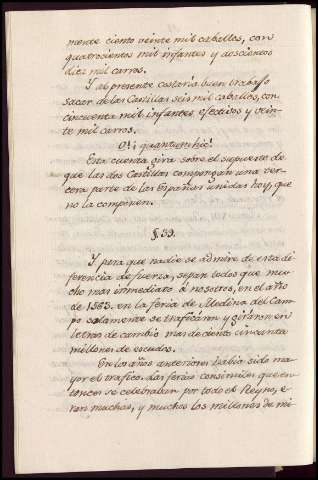 mente ciento veinte mil caballos, con
quatrocientos mil infantes y doscientos
diez mil carros.
Y al presente costaria buen trabajo
sacar de las Castillas seis mil caballos, con
cincuenta mil infantes efectivos y vein-
te mil carros.
O! quantum hic!
Esta cuenta gira sobre el supuesto de
que las dos Castillas compongan una ter-
cera parte de las Españas unidas hoy, que
no la componen.
§. 33.
Y para que nadie se admire de esta di-
ferencia de fuerza, sepan todos que mu-
cho mas inmediato á nosotros, en el año
de 1563. en la feria de Medina del Cam-
po solamente se traficáron y giráron en
letras de cambio mas de ciento cincuenta
millones de escudos.
En los años anteriores habia sido ma-
yor el trafico. Las ferias consimiles que en-
tonces se celebraban por todo el Reyno, e-
ran muchas, y muchos los millones de mi-